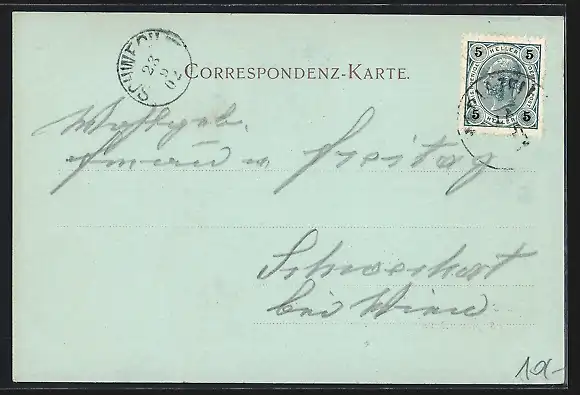 SCHWECHAT
23 5 02
CORRESPONDENZ-KARTE.
5 HELLER 5
5 HELLER 5
Wohlgeb.
Freitag
Schwechat
bei Wien
10,-